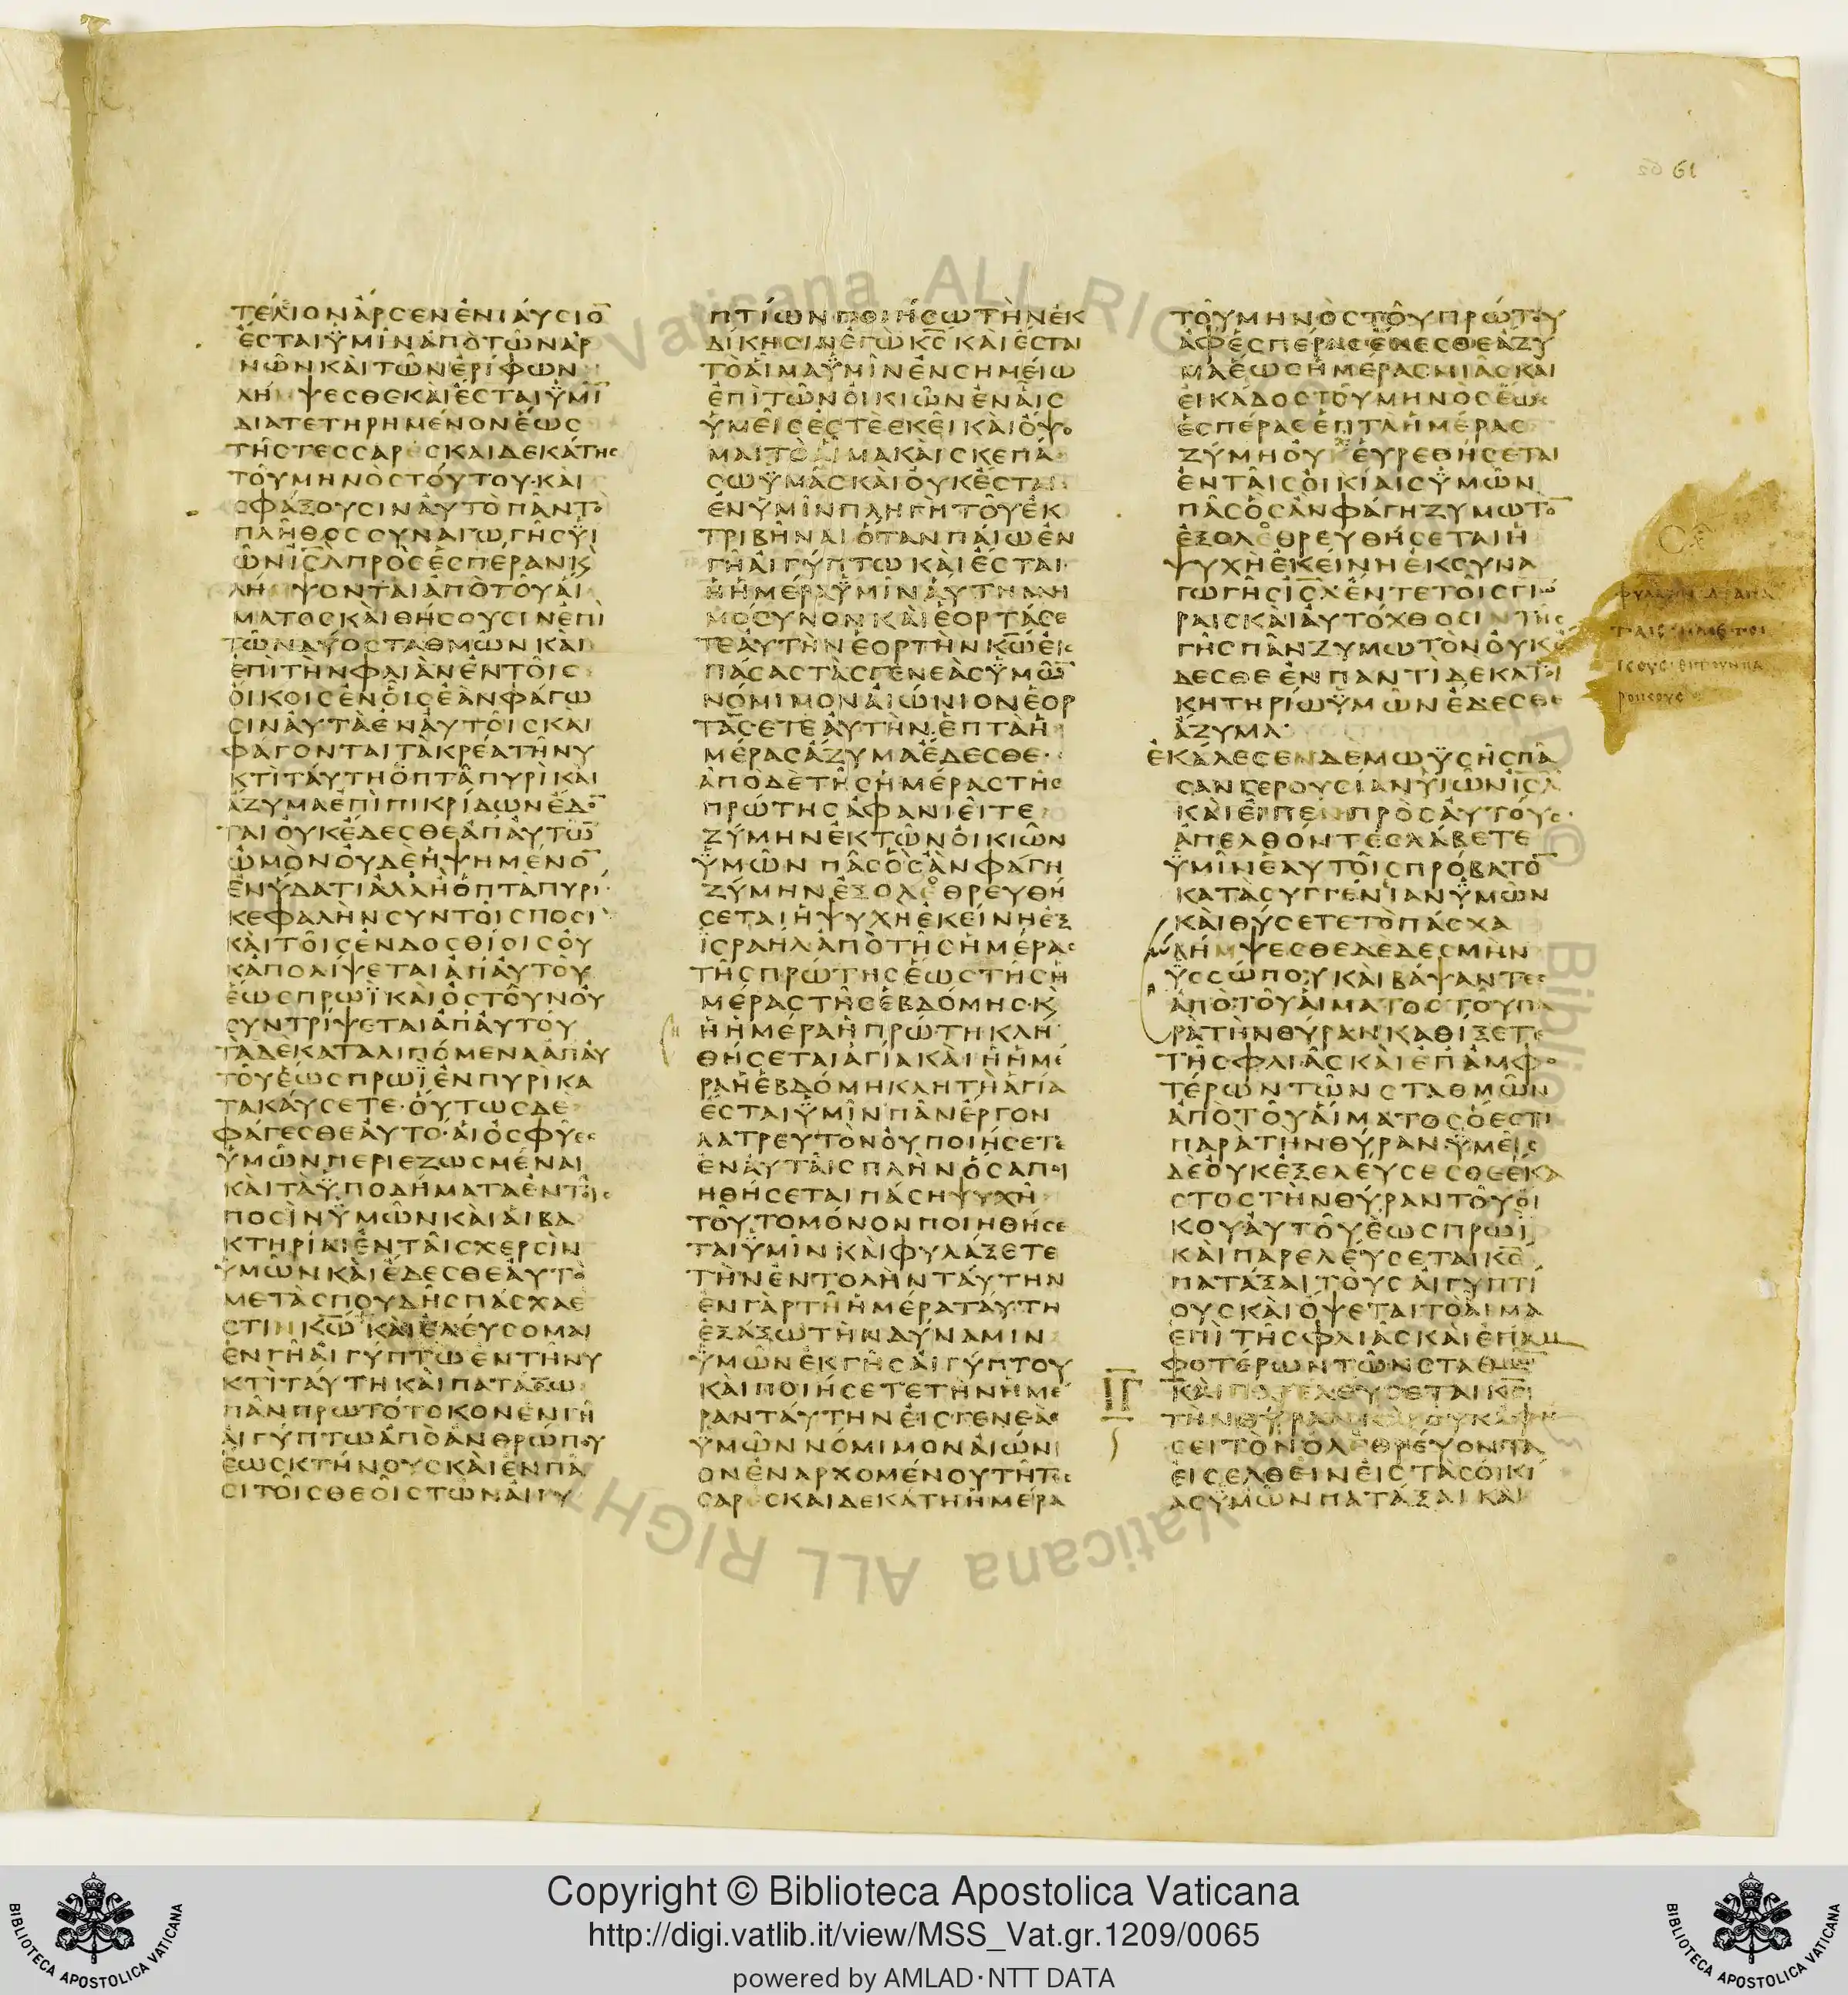 61
ΤΕΛΙΟΝΑΡΣΕΝΕΝΙΑΥΣΙΟ̅
ΕΣΤΑΙΫΜΙΝΑΠΟΤΩΝΑΡ
ΝΩΝΚΑΙΤΩΝΕΡΙΦΩΝ
ΛΗΜΨΕΣΘΕΚΑΙΕΣΤΑΙΫΜΙ̅
ΔΙΑΤΕΤΗΡΗΜΕΝΟΝΕΩΣ
ΤΗΣΤΕΣΣΑΡΕΣΚΑΙΔΕΚΑΤΗΣ
ΤΟΥΜΗΝΟΣΤΟΥΤΟΥ·ΚΑΙ
ΣΦΑΞΟΥΣΙΝΑΥΤΟΠΑΝΤΟ
ΠΛΗΘΟΣΣΥΝΑΓΩΓΗΣΫΙ
ΩΝΙΣ̅Λ̅ΠΡΟΣΕΣΠΕΡΑΝΚ
ΛΗΜΨΟΝΤΑΙΑΠΟΤΟΥΑΙ
ΜΑΤΟΣΚΑΙΘΗΣΟΥΣΙΝΕΠΙ
ΤΩΝΔΥΟΣΤΑΘΜΩΝΚΑΙ
ΕΠΙΤΗΝΦΛΙΑΝΕΝΤΟΙΣ
ΟΙΚΟΙΣΕΝΟΙΣΕΑΝΦΑΓΩ
ΣΙΝΑΥΤΑΕΝΑΥΤΟΙΣΚΑΙ
ΦΑΓΟΝΤΑΙΤΑΚΡΕΑΤΗΝΥ
ΚΤΙΤΑΥΤΗΟΠΤΑΠΥΡΙΚΑΙ
ΑΖΥΜΑΕΠΙΠΙΚΡΙΔΩΝΕΔΟ̅
ΤΑΙΟΥΚΕΔΕΣΘΕΑΠΑΥΤΩ̅
ΩΜΟΝΟΥΔΕΗΨΗΜΕΝΟ̅
ΕΝΫΔΑΤΙΑΛΛΗΟΠΤΑΠΥΡΙ·
ΚΕΦΑΛΗΝΣΥΝΤΟΙΣΠΟΣΙ
ΚΑΙΤΟΙΣΕΝΔΟΣΘΙΟΙΣΟΥ
ΚΑΠΟΛΙΨΕΤΑΙΑΠΑΥΤΟΥ
ΕΩΣΠΡΩΪΚΑΙΟΣΤΟΥΝΟΥ
ΣΥΝΤΡΙΨΕΤΑΙΑΠΑΥΤΟΥ
ΤΑΔΕΚΑΤΑΛΙΠΟΜΕΝΑΑΠΑΥ
ΤΟΥΕΩΣΠΡΩΪΕΝΠΥΡΙΚΑ
ΤΑΚΑΥΣΕΤΕ·ΟΥΤΩΣΔΕ
ΦΑΓΕΣΘΕΑΥΤΟ·ΑΙΟΣΦΥΕΣ
ΫΜΩΝΠΕΡΙΕΖΩΣΜΕΝΑΙ
ΚΑΙΤΑΫΠΟΔΗΜΑΤΑΕΝΤΟΙΣ
ΠΟΣΙΝΫΜΩΝΚΑΙΑΙΒΑ
ΚΤΗΡΙΑΙΕΝΤΑΙΣΧΕΡΣΙΝ
ΫΜΩΝΚΑΙΕΔΕΣΘΕΑΥΤΟ
ΜΕΤΑΣΠΟΥΔΗΣΠΑΣΧΑΕ
ΣΤΙΝΚΩ̅ΚΑΙΕΛΕΥΣΟΜΑΙ
ΕΝΓΗΑΙΓΥΠΤΩΕΝΤΗΝΥ
ΚΤΙΤΑΥΤΗΚΑΙΠΑΤΑΞΩ
ΠΑΝΠΡΩΤΟΤΟΚΟΝΕΝΓΗ
ΑΙΓΥΠΤΩΑΠΟΑΝΘΡΩΠΟΥ
ΕΩΣΚΤΗΝΟΥΣΚΑΙΕΝΠΑ
ΣΙΤΟΙΣΘΕΟΙΣΤΩΝΑΙΓΥ
ΠΤΙΩΝΠΟΙΗΣΩΤΗΝΕΚ
ΔΙΚΗΣΙΝΕΓΩΚΣ̅ΚΑΙΕΣΤΑΙ
ΤΟΑΙΜΑΫΜΙΝΕΝΣΗΜΕΙΩ
ΕΠΙΤΩΝΟΙΚΙΩΝΕΝΑΙΣ
ΫΜΕΙΣΕΣΤΕΕΚΕΙΚΑΙΟΨΟ
ΜΑΙΤΟΑΙΜΑΚΑΙΣΚΕΠΑ
ΣΩΫΜΑΣΚΑΙΟΥΚΕΣΤΑΙ
ΕΝΫΜΙΝΠΛΗΓΗΤΟΥΕΚ
ΤΡΙΒΗΝΑΙΟΤΑΝΠΑΙΩΕΝ
ΓΗΑΙΓΥΠΤΩΚΑΙΕΣΤΑΙ
ΗΗΜΕΡΑΫΜΙΝΑΥΤΗΜΝΗ
ΜΟΣΥΝΟΝΚΑΙΕΟΡΤΑΣΕ
ΤΕΑΥΤΗΝΕΟΡΤΗΝΚΩ̅ΕΙΣ
ΠΑΣΑΣΤΑΣΓΕΝΕΑΣΫΜΩ̅
ΝΟΜΙΜΟΝΑΙΩΝΙΟΝΕΟΡ
ΤΑΣΕΤΕΑΥΤΗΝ·ΕΠΤΑΗ
ΜΕΡΑΣΑΖΥΜΑΕΔΕΣΘΕ·
ΑΠΟΔΕΤΗΣΗΜΕΡΑΣΤΗΣ
ΠΡΩΤΗΣΑΦΑΝΙΕΙΤΕ
ΖΥΜΗΝΕΚΤΩΝΟΙΚΙΩΝ
ΫΜΩΝΠΑΣΟΣΑΝΦΑΓΗ
ΖΥΜΗΝΕΞΟΛΕΘΡΕΥΘΗ
ΣΕΤΑΙΗΨΥΧΗΕΚΕΙΝΗΕΞ
ΙΣΡΑΗΛΑΠΟΤΗΣΗΜΕΡΑΣ
ΤΗΣΠΡΩΤΗΣΕΩΣΤΗΣΗ
ΜΕΡΑΣΤΗΣΕΒΔΟΜΗΣ·Κ
ΗΗΜΕΡΑΗΠΡΩΤΗΚΛΗ
ΘΗΣΕΤΑΙΑΓΙΑΚΑΙΗΗΜΕ
ΡΑΗΕΒΔΟΜΗΚΛΗΤΗΑΓΙΑ
ΕΣΤΑΙΫΜΙΝΠΑΝΕΡΓΟΝ
ΛΑΤΡΕΥΤΟΝΟΥΠΟΙΗΣΕΤΕ
ΕΝΑΥΤΑΙΣΠΛΗΝΟΣΑΠΟΙ
ΗΘΗΣΕΤΑΙΠΑΣΗΨΥΧΗ
ΤΟΥΤΟΜΟΝΟΝΠΟΙΗΘΗΣΕ
ΤΑΙΫΜΙΝΚΑΙΦΥΛΑΞΕΤΕ
ΤΗΝΕΝΤΟΛΗΝΤΑΥΤΗΝ
ΕΝΓΑΡΤΗΗΜΕΡΑΤΑΥΤΗ
ΕΞΑΞΩΤΗΝΔΥΝΑΜΙΝ
ΫΜΩΝΕΚΓΗΣΑΙΓΥΠΤΟΥ
ΚΑΙΠΟΙΗΣΕΤΕΤΗΝΗΜΕ
ΡΑΝΤΑΥΤΗΝΕΙΣΓΕΝΕΑΣ
ΫΜΩΝΝΟΜΙΜΟΝΑΙΩΝΙ
ΟΝΕΝΑΡΧΟΜΕΝΟΥΤΗΤΕΣ
ΣΑΡΕΣΚΑΙΔΕΚΑΤΗΗΜΕΡΑ
ΤΟΥΜΗΝΟΣΤΟΥΠΡΩΤΟΥ
ΑΦΕΣΠΕΡΑΣΕΔΕΣΘΕΑΖΥ
ΜΑΕΩΣΗΜΕΡΑΣΜΙΑΣΚΑΙ
ΕΙΚΑΔΟΣΤΟΥΜΗΝΟΣΕΩΣ
ΕΣΠΕΡΑΣΕΠΤΑΗΜΕΡΑΣ
ΖΥΜΗΟΥΧΕΥΡΕΘΗΣΕΤΑΙ
ΕΝΤΑΙΣΟΙΚΙΑΙΣΫΜΩΝ
ΠΑΣΟΣΑΝΦΑΓΗΖΥΜΩΤΟ̅
ΕΞΟΛΕΘΡΕΥΘΗΣΕΤΑΙΗ
ΨΥΧΗΕΚΕΙΝΗΕΚΣΥΝΑ
ΓΩΓΗΣΙΣ̅Λ̅ΕΝΤΕΤΟΙΣΓΙΩ
ΡΑΙΣΚΑΙΑΥΤΟΧΘΟΣΙΝΤΗΣ
ΓΗΣΠΑΝΖΥΜΩΤΟΝΟΥΚΕ
ΔΕΣΘΕΕΝΠΑΝΤΙΔΕΚΑΤΟΙ
ΚΗΤΗΡΙΩΫΜΩΝΕΔΕΣΘΕ
ΑΖΥΜΑ·
ΕΚΑΛΕΣΕΝΔΕΜΩΫΣΗΣΠΑ
ΣΑΝΓΕΡΟΥΣΙΑΝΫΙΩΝΙΣ̅Λ̅
ΚΑΙΕΙΠΕΝΠΡΟΣΑΥΤΟΥΣ·
ΑΠΕΛΘΟΝΤΕΣΛΑΒΕΤΕ
ΫΜΙΝΕΑΥΤΟΙΣΠΡΟΒΑΤΟ̅
ΚΑΤΑΣΥΓΓΕΝΙΑΝΫΜΩΝ
ΚΑΙΘΥΣΕΤΕΤΟΠΑΣΧΑ
ΛΗΜΨΕΣΘΕΔΕΔΕΣΜΗΝ
ΫΣΣΩΠΟΥΚΑΙΒΑΨΑΝΤΕΣ
ΑΠΟΤΟΥΑΙΜΑΤΟΣΤΟΥΠΑ
ΡΑΤΗΝΘΥΡΑΝΚΑΘΙΞΕΤΕ
ΤΗΣΦΛΙΑΣΚΑΙΕΠΑΜΦΟ
ΤΕΡΩΝΤΩΝΣΤΑΘΜΩΝ
ΑΠΟΤΟΥΑΙΜΑΤΟΣΟΕΣΤΙ
ΠΑΡΑΤΗΝΘΥΡΑΝΫΜΕΙΣ
ΔΕΟΥΚΕΞΕΛΕΥΣΕΣΘΕΕΚΑ
ΣΤΟΣΤΗΝΘΥΡΑΝΤΟΥΟΙ
ΚΟΥΑΥΤΟΥΕΩΣΠΡΩΪ
ΚΑΙΠΑΡΕΛΕΥΣΕΤΑΙΚΣ̅
ΠΑΤΑΞΑΙΤΟΥΣΑΙΓΥΠΤΙ
ΟΥΣΚΑΙΟΨΕΤΑΙΤΟΑΙΜΑ
ΕΠΙΤΗΣΦΛΙΑΣΚΑΙΕΠΑΜ
ΦΟΤΕΡΩΝΤΩΝΣΤΑΘΜΩ̅
ΚΑΙΠΑΡΕΛΕΥΣΕΤΑΙΚΣ̅
ΤΗΝΘΥΡΑΝΚΑΙΟΥΚΑΦΗ
ΣΕΙΤΟΝΟΛΕΘΡΕΥΟΝΤΑ
ΕΙΣΕΛΘΕΙΝΕΙΣΤΑΣΟΙΚΙ
ΑΣΫΜΩΝΠΑΤΑΞΑΙΚΑΙ
ΙΓ
Copyright © Biblioteca Apostolica Vaticana
http://digi.vatlib.it/view/MSS_Vat.gr.1209/0065
powered by AMLAD·NTT DATA
BIBLIOTECA APOSTOLICA VATICANA
BIBLIOTECA APOSTOLICA VATICANA